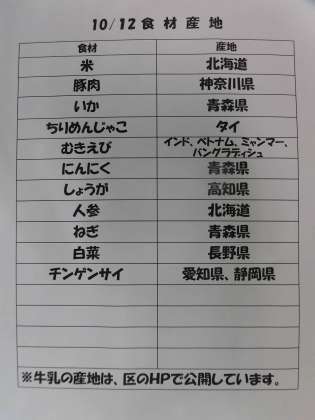 10/12食材産地
食材 産地
米 北海道
豚肉 神奈川県
いか 青森県
ちりめんじゃこ タイ
むきえび インド、ベトナム、ミャンマー、
バングラディシュ
にんにく 青森県
しょうが 高知県
人参 北海道
ねぎ 青森県
白菜 長野県
チンゲンサイ 愛知県、静岡県
※牛乳の産地は、区のHPで公開しています。